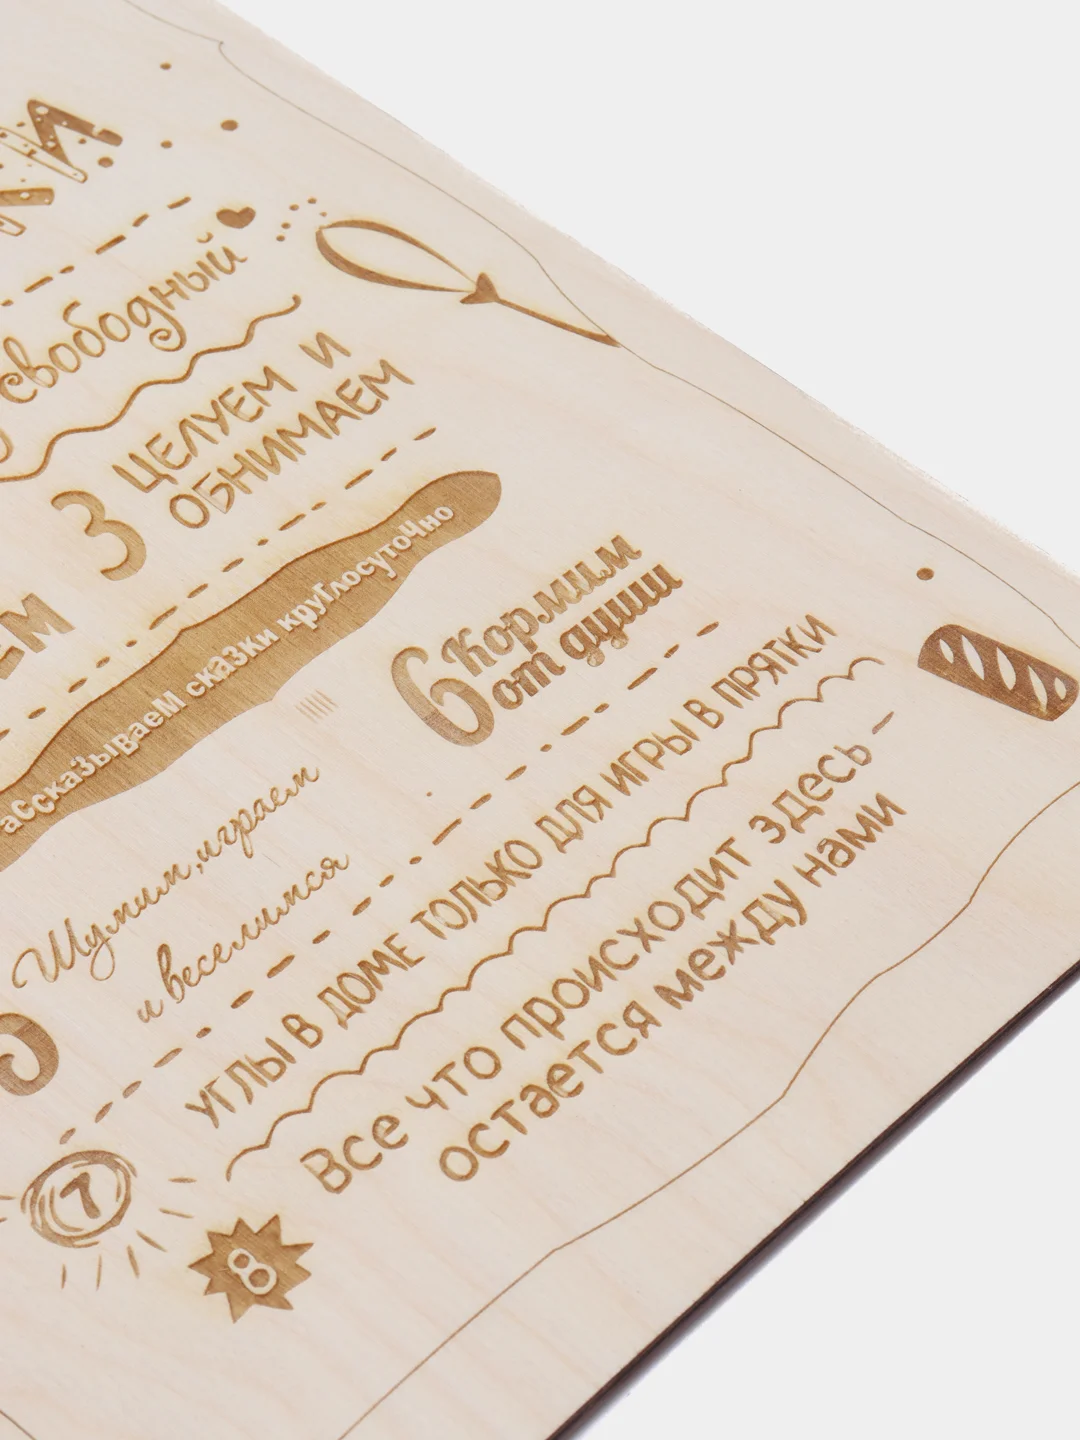 свободный
3 ЦЕЛУЕМ И
ОБНИМАЕМ
ЕМ
ассказываем сказки круглосуточно
Шумим, играем
и веселимся
6 Кормим
от души
7 УГЛЫ В ДОМЕ ТОЛЬКО ДЛЯ ИГРЫ В ПРЯТКИ
8 Все что происходит здесь –
остается между нами